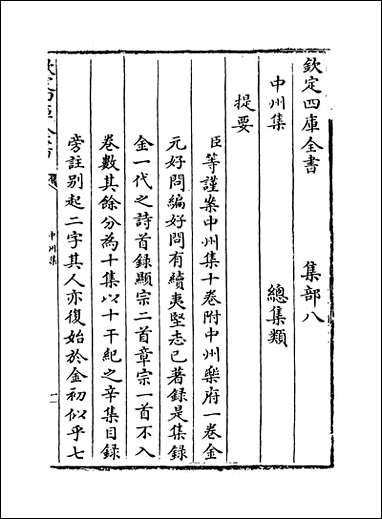 欽定四庫全書 集部八
中州集 總集類
提要
臣等謹案中州集十卷附中州樂府一卷金
元好問編好問有續夷堅志已著錄是集錄
金一代之詩首錄顯宗二首章宗一首不入
卷數其餘分為十集以十干紀之辛集目錄
旁註别起二字其人亦復始於金初似乎七
中州集